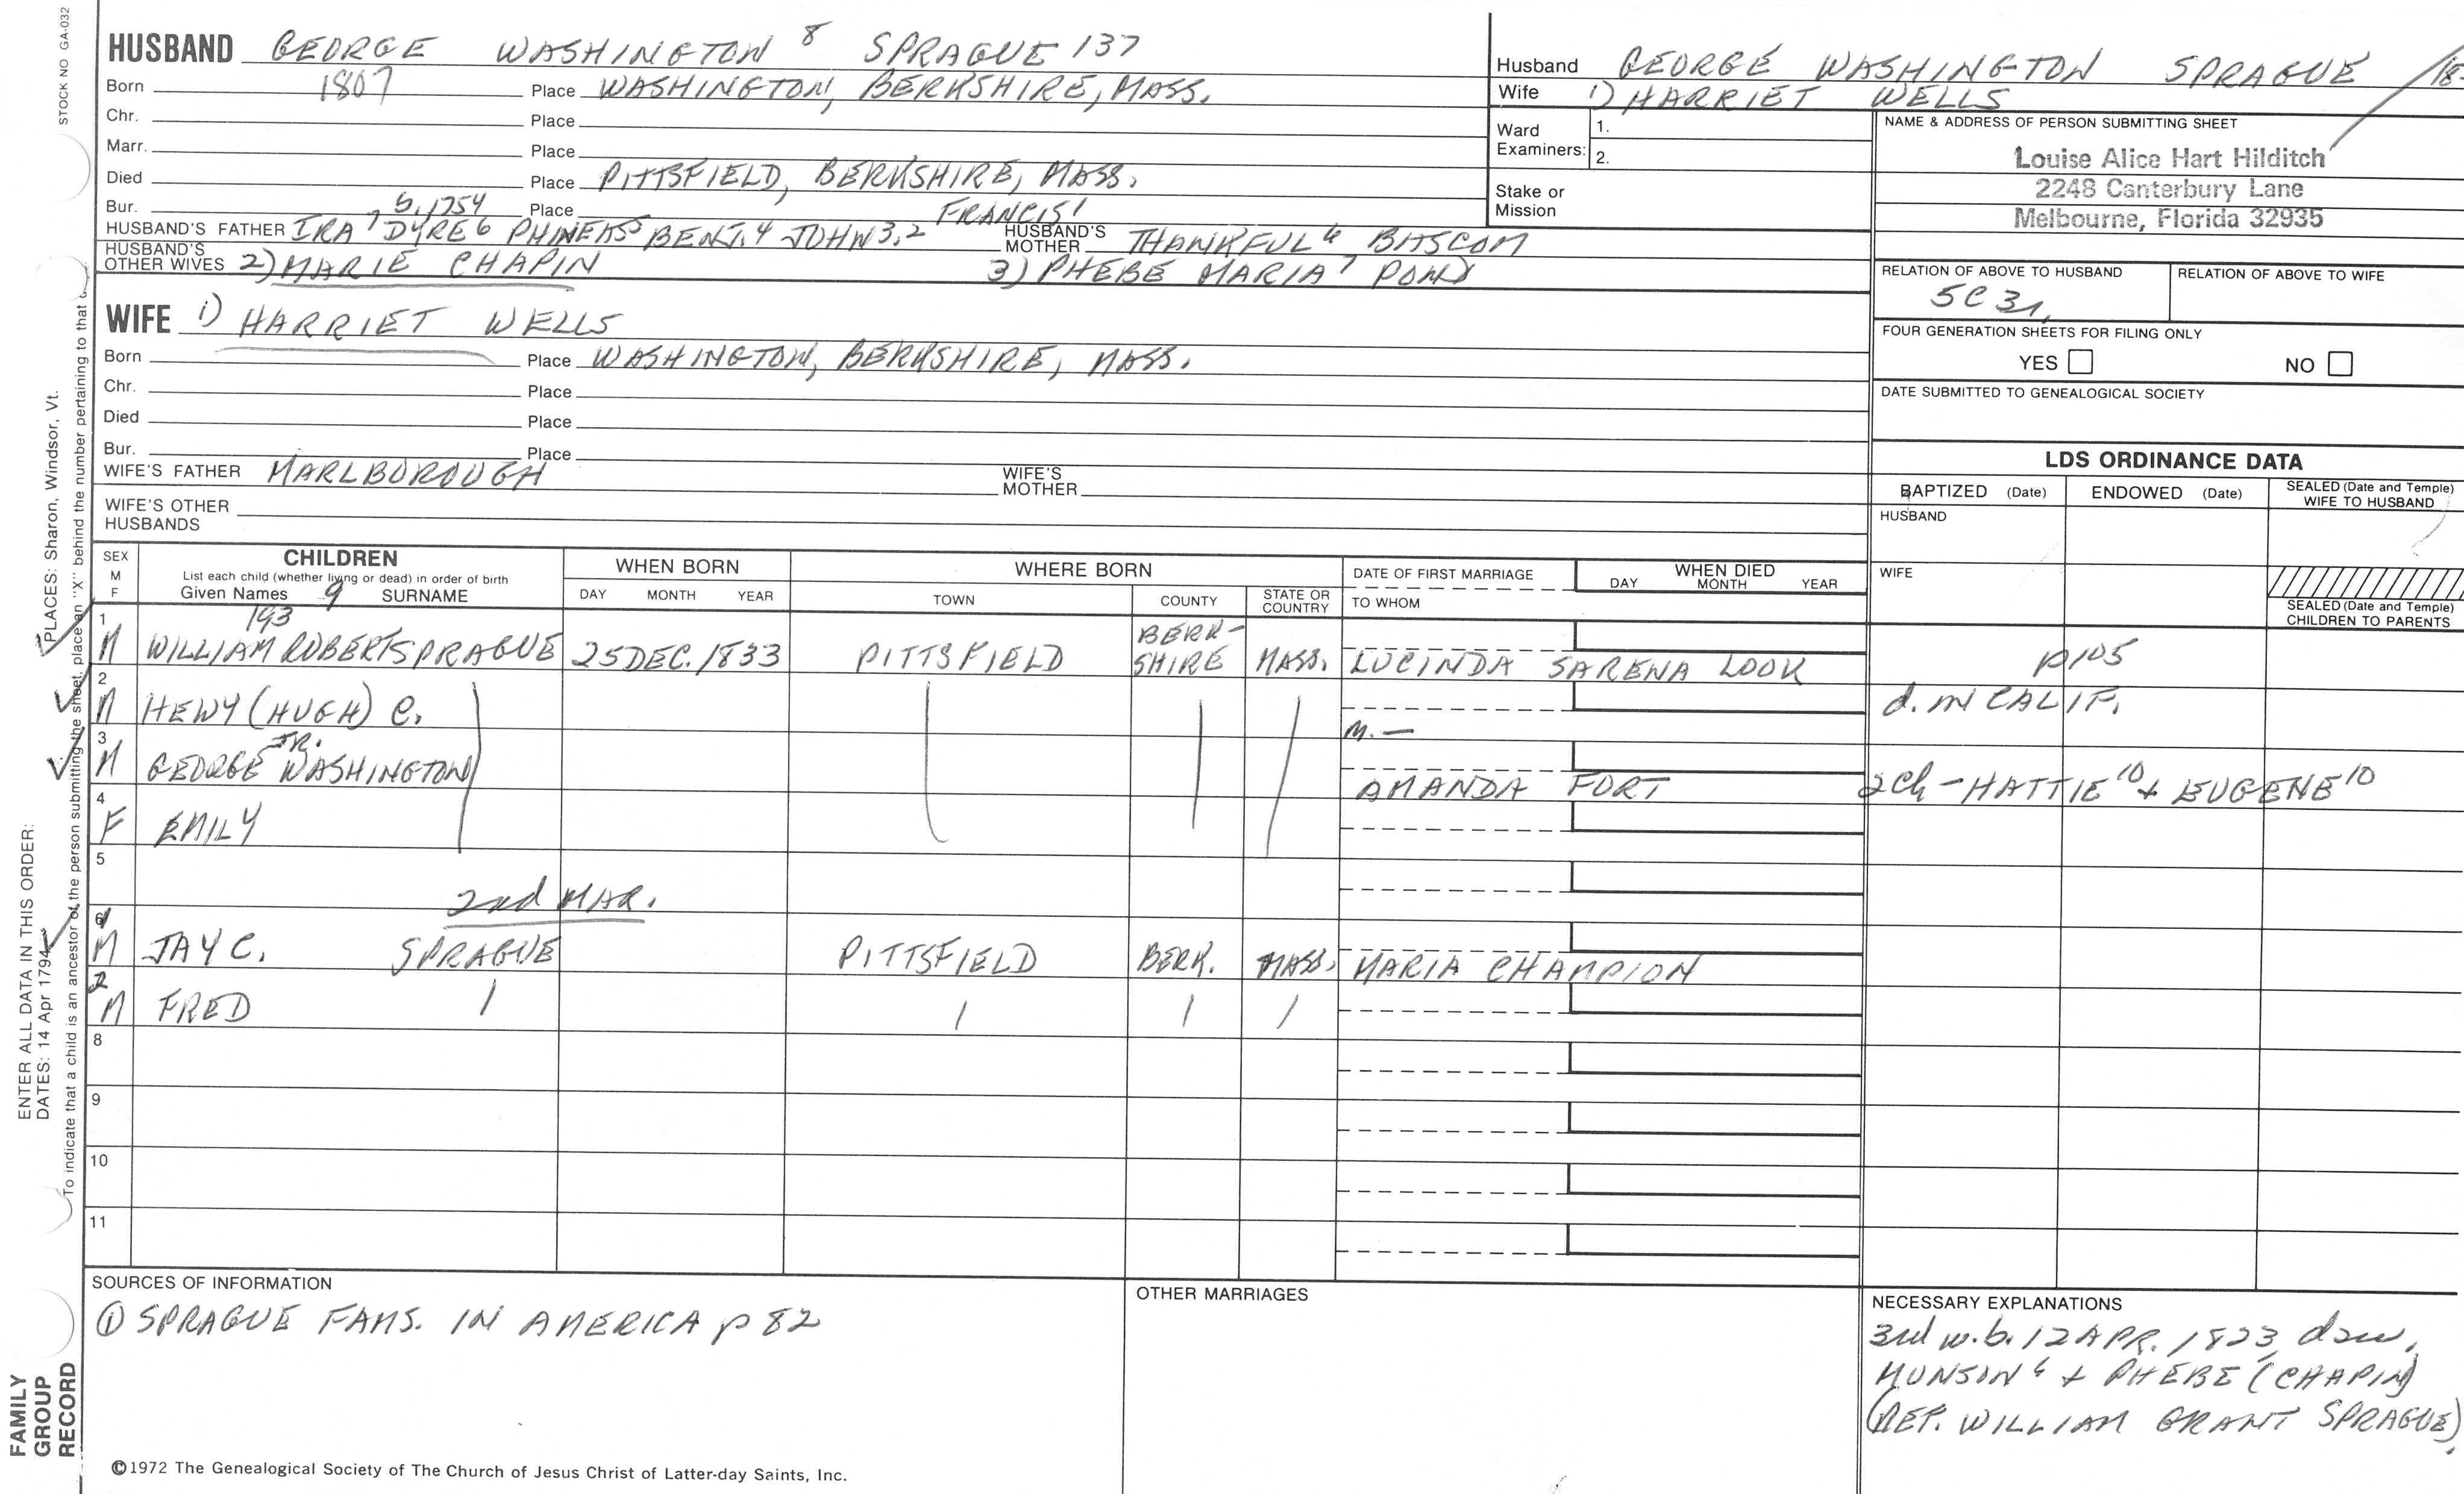 STOCK NO GA-032
HUSBAND GEORGE WASHINGTON 8 SPRAGUE 137
Born 1807 Place WASHINGTON, BERKSHIRE, MASS.
Chr. Place
Marr. Place
Died Place PITTSFIELD, BERKSHIRE, MASS.
Bur. Place
b. 1754 FRANCIS 1
HUSBAND'S FATHER IRA 7 DYRE 6 PHINEAS 5 BENJ. 4 JOHN 3,2 HUSBAND'S MOTHER THANKFUL 6 BASCOM
HUSBAND'S OTHER WIVES 2) MARIE CHAPIN 3) PHEBE MARIA 7 POND
WIFE 1) HARRIET WELLS
Born Place WASHINGTON, BERKSHIRE, MASS.
Chr. Place
Died Place
Bur. Place
WIFE'S FATHER MARLBOROUGH WIFE'S MOTHER
WIFE'S OTHER HUSBANDS
Husband GEORGE WASHINGTON SPRAGUE
Wife 1) HARRIET WELLS
Ward Examiners: 1.
2.
Stake or Mission
NAME & ADDRESS OF PERSON SUBMITTING SHEET
Louise Alice Hart Hilditch
2248 Canterbury Lane
Melbourne, Florida 32935
RELATION OF ABOVE TO HUSBAND RELATION OF ABOVE TO WIFE
5C 3r.
FOUR GENERATION SHEETS FOR FILING ONLY
YES NO
DATE SUBMITTED TO GENEALOGICAL SOCIETY
LDS ORDINANCE DATA
BAPTIZED (Date) ENDOWED (Date) SEALED (Date and Temple) WIFE TO HUSBAND
HUSBAND
WIFE
SEALED (Date and Temple) CHILDREN TO PARENTS
SEX M F
CHILDREN
List each child (whether living or dead) in order of birth
Given Names 9 SURNAME
WHEN BORN
DAY MONTH YEAR
WHERE BORN
TOWN COUNTY STATE OR COUNTRY
DATE OF FIRST MARRIAGE
TO WHOM
WHEN DIED
DAY MONTH YEAR
193
1 M WILLIAM ROBERT SPRAGUE 25 DEC. 1833 PITTSFIELD BERK-SHIRE MASS. LUCINDA SARENA LOOK p105
2 M HEWY (HUGH) C. d. in CALIF.
M. —
3 M GEORGE WASHINGTON JR. AMANDA FORT 2 Ch - HATTIE 10 + EUGENE 10
4 F EMILY
5
2nd MAR.
6 1 M JAY C. SPRAGUE PITTSFIELD BERK. MASS. MARIA CHAMPION
2 M FRED
8
9
10
11
SOURCES OF INFORMATION
① SPRAGUE FAMS. IN AMERICA p 82
OTHER MARRIAGES
NECESSARY EXPLANATIONS
3rd w. b. 12 APR. 1823, dau.
MUNSON 6 + PHEBE (CHAPIN)
(REF. WILLIAM GRANT SPRAGUE).
©1972 The Genealogical Society of The Church of Jesus Christ of Latter-day Saints, Inc.
FAMILY GROUP RECORD
ENTER ALL DATA IN THIS ORDER:
DATES: 14 Apr 1794
PLACES: Sharon, Windsor, Vt.
To indicate that a child is an ancestor of the person submitting the sheet, place an "X" behind the number pertaining to that